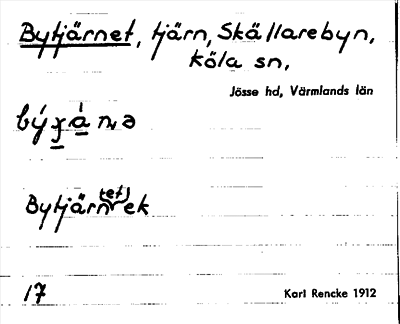 Bytjärnet, tjärn, Skällarebyn,
köla sn,
Jösse hd, Värmlands län
Bytjärn(et) ek
17
Karl Rencke 1912